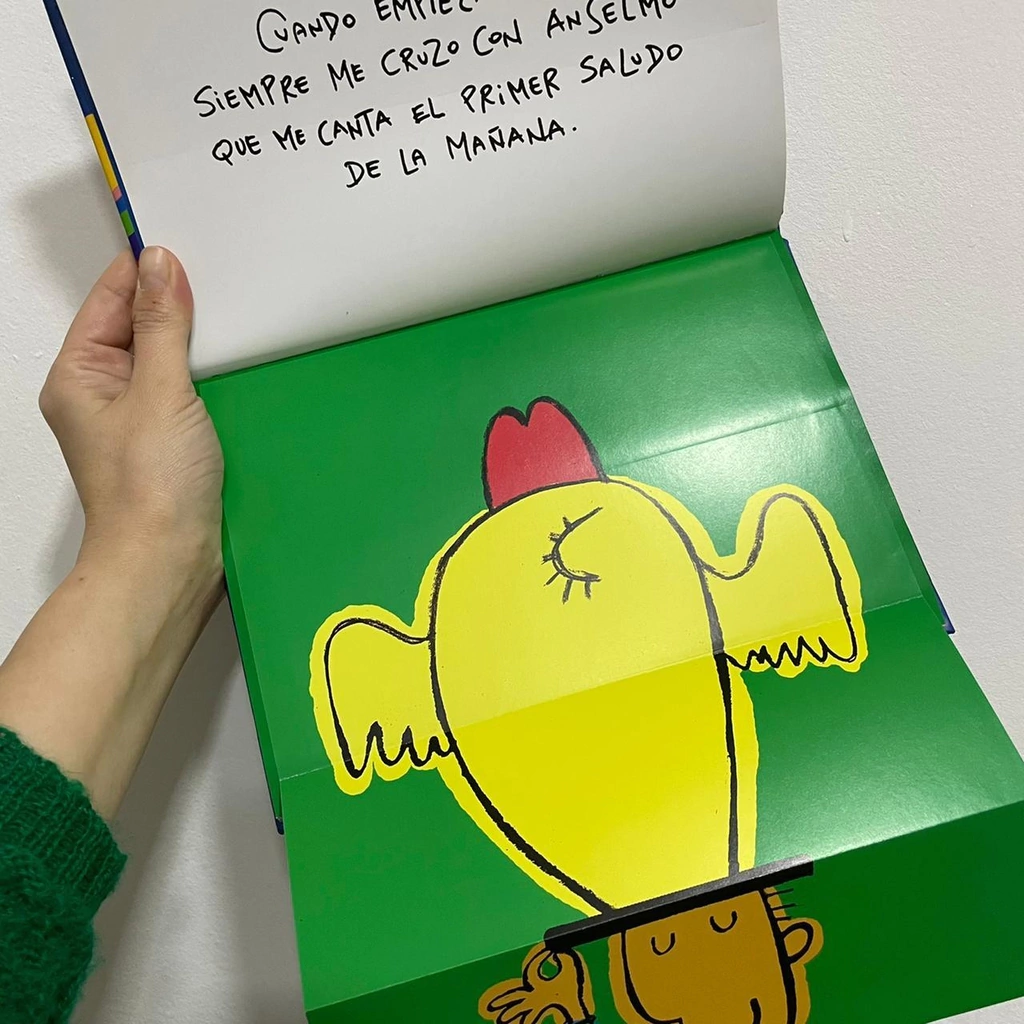 CUANDO
SIEMPRE ME CRUZO CON ANSELMO
QUE ME CANTA EL PRIMER SALUDO
DE LA MAÑANA.